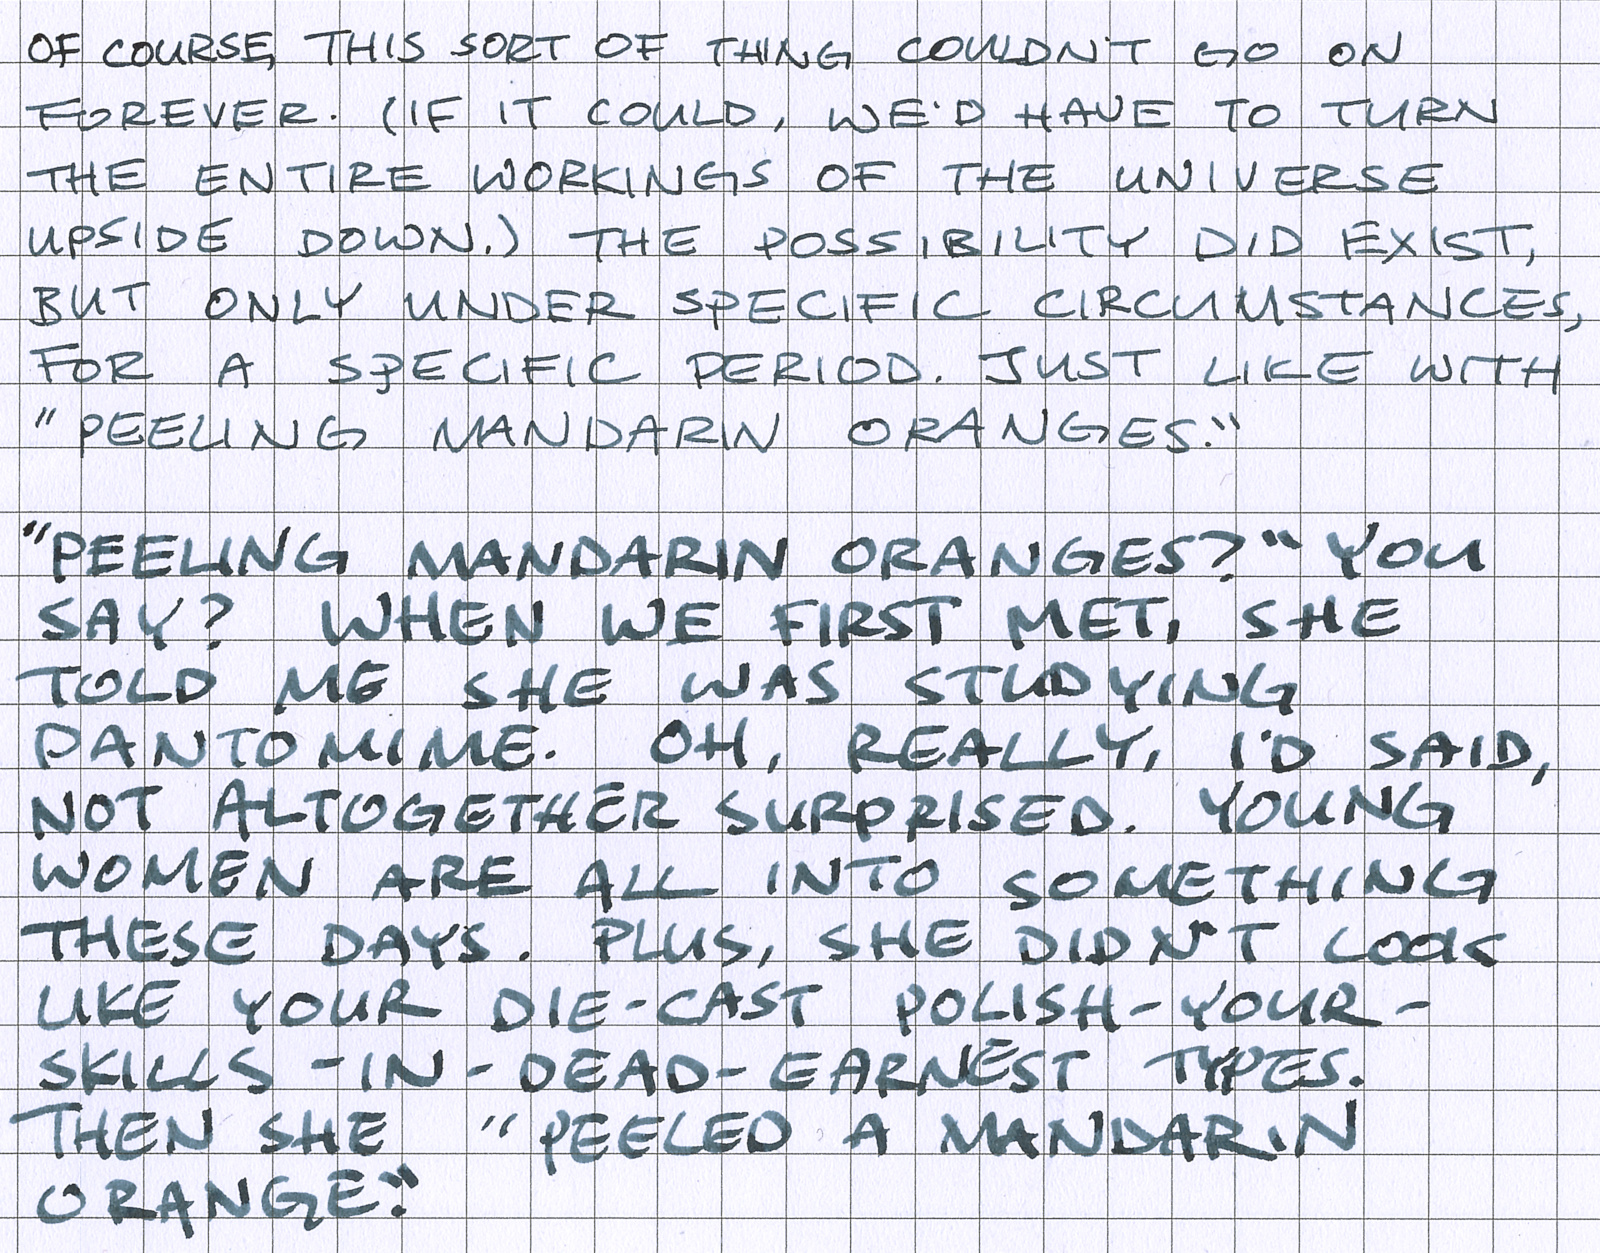 OF COURSE, THIS SORT OF THING COULDN'T GO ON
FOREVER. (IF IT COULD, WE'D HAVE TO TURN
THE ENTIRE WORKINGS OF THE UNIVERSE
UPSIDE DOWN.) THE POSSIBILITY DID EXIST,
BUT ONLY UNDER SPECIFIC CIRCUMSTANCES,
FOR A SPECIFIC PERIOD. JUST LIKE WITH
"PEELING MANDARIN ORANGES."
"PEELING MANDARIN ORANGES?" YOU
SAY? WHEN WE FIRST MET, SHE
TOLD ME SHE WAS STUDYING
PANTOMIME. OH, REALLY, I'D SAID,
NOT ALTOGETHER SURPRISED. YOUNG
WOMEN ARE ALL INTO SOMETHING
THESE DAYS. PLUS, SHE DIDN'T LOOK
LIKE YOUR DIE-CAST POLISH-YOUR-
SKILLS-IN-DEAD-EARNEST TYPES.
THEN SHE "PEELED A MANDARIN
ORANGE."